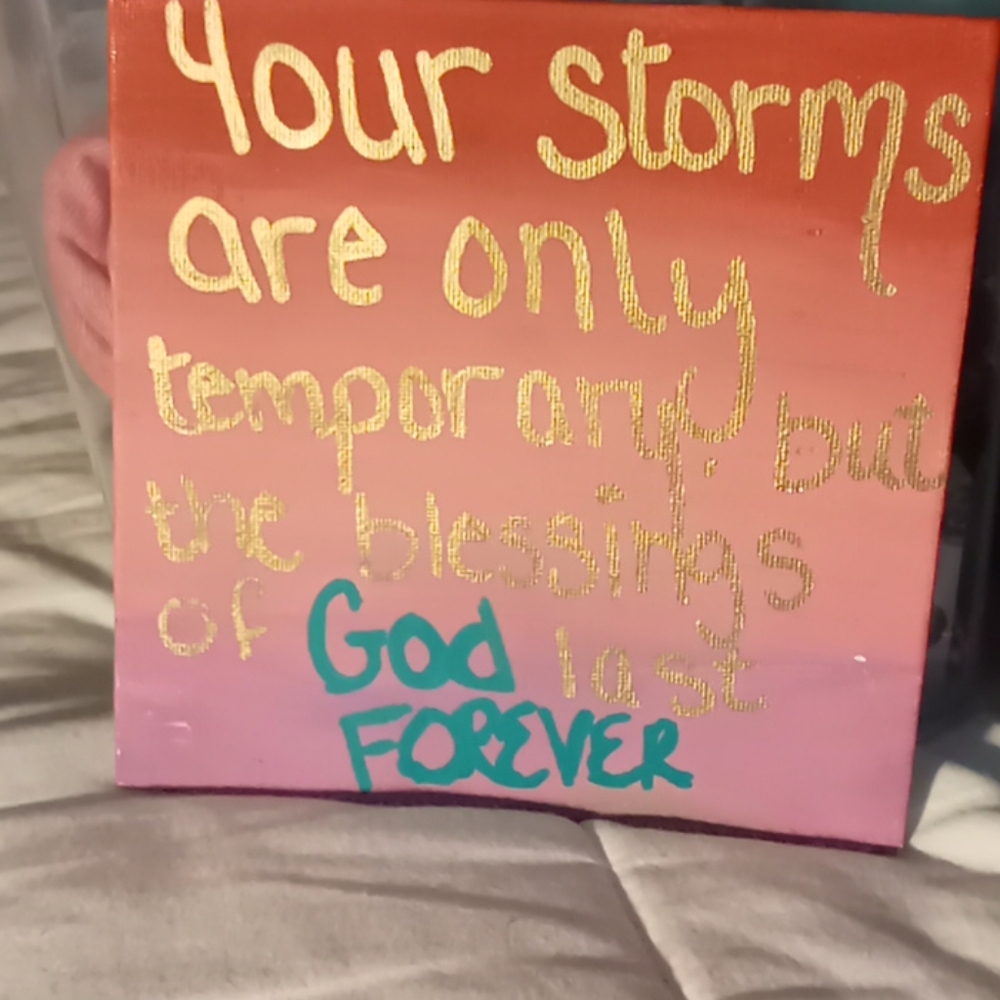 Your storms
are only
temporary, but
the blessings
of God last
FOREVER